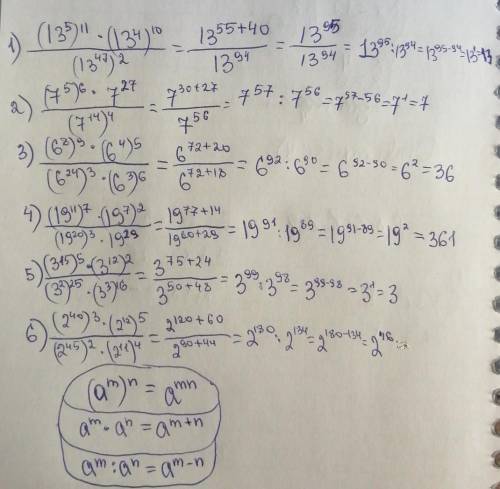 1) \frac{(13^5)^{11} \cdot (13^4)^{10}}{(13^{47})^2} = \frac{13^{55+40}}{13^{94}} = \frac{13^{95}}{13^{94}} = 13^{95} : 13^{94} = 13^{95-94} = 13^1 = 13
2) \frac{(7^5)^6 \cdot 7^{27}}{(7^{14})^4} = \frac{7^{30+27}}{7^{56}} = 7^{57} : 7^{56} = 7^{57-56} = 7^1 = 7
3) \frac{(6^8)^9 \cdot (6^4)^5}{(6^{24})^3 \cdot (6^3)^6} = \frac{6^{72+20}}{6^{72+18}} = 6^{92} : 6^{90} = 6^{92-90} = 6^2 = 36
4) \frac{(19^{11})^7 \cdot (19^7)^2}{(19^{20})^3 \cdot 19^{29}} = \frac{19^{77+14}}{19^{60+29}} = 19^{91} : 19^{89} = 19^{91-89} = 19^2 = 361
5) \frac{(3^{15})^5 \cdot (3^{12})^2}{(3^2)^{25} \cdot (3^3)^{16}} = \frac{3^{75+24}}{3^{50+48}} = 3^{99} : 3^{98} = 3^{99-98} = 3^1 = 3
6) \frac{(2^{40})^3 \cdot (2^{12})^5}{(2^{45})^2 \cdot (2^{11})^4} = \frac{2^{120+60}}{2^{90+44}} = 2^{180} : 2^{134} = 2^{180-134} = 2^{46}
(a^m)^n = a^{mn}
a^m \cdot a^n = a^{m+n}
a^m : a^n = a^{m-n}